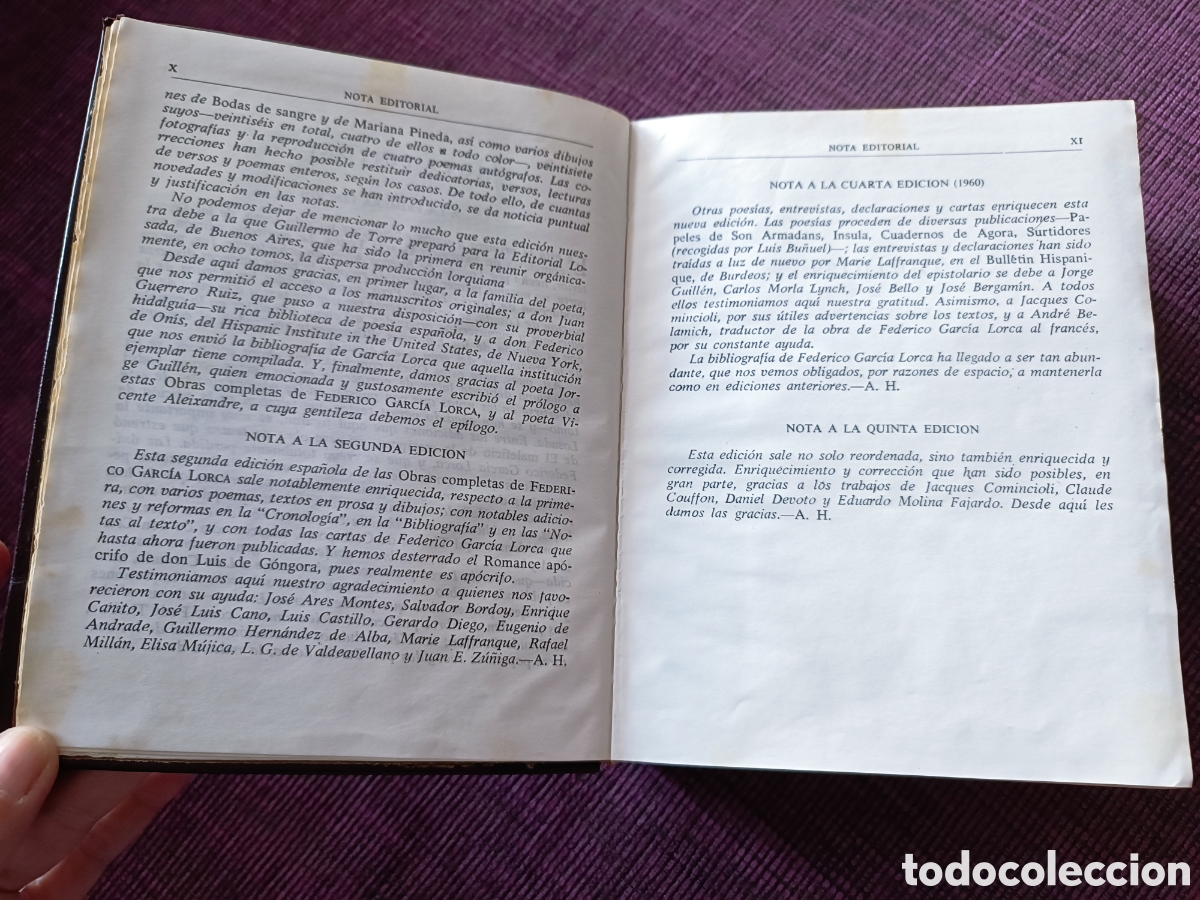 X
NOTA EDITORIAL
nes de Bodas de sangre y de Mariana Pineda, así como varios dibujos
suyos—veintiséis en total, cuatro de ellos a todo color—, veintisiete
fotografías y la reproducción de cuatro poemas autógrafos. Las co-
rrecciones han hecho posible restituir dedicatorias, versos, lecturas
de versos y poemas enteros, según los casos. De todo ello, de cuantas
novedades y modificaciones se han introducido, se da noticia puntual
y justificación en las notas.
No podemos dejar de mencionar lo mucho que esta edición nues-
tra debe a la que Guillermo de Torre preparó para la Editorial Lo-
sada, de Buenos Aires, que ha sido la primera en reunir orgánica-
mente, en ocho tomos, la dispersa producción lorquiana
Desde aquí damos gracias, en primer lugar, a la familia del poeta,
que nos permitió el acceso a los manuscritos originales; a don Juan
Guerrero Ruiz, que puso a nuestra disposición—con su proverbial
hidalguía—su rica biblioteca de poesía española, y a don Federico
de Onís, del Hispanic Institute in the United States, de Nueva York,
que nos envió la bibliografía de García Lorca que aquella institución
ejemplar tiene compilada. Y, finalmente, damos gracias al poeta Jor-
ge Guillén, quien emocionada y gustosamente escribió el prólogo a
estas Obras completas de FEDERICO GARCÍA LORCA, y al poeta Vi-
cente Aleixandre, a cuya gentileza debemos el epílogo.
NOTA A LA SEGUNDA EDICION
Esta segunda edición española de las Obras completas de FEDERI-
CO GARCÍA LORCA sale notablemente enriquecida, respecto a la prime-
ra, con varios poemas, textos en prosa y dibujos; con notables adicio-
nes y reformas en la "Cronología", en la "Bibliografía" y en las "No-
tas al texto", y con todas las cartas de Federico García Lorca que
hasta ahora fueron publicadas. Y hemos desterrado el Romance apó-
crifo de don Luis de Góngora, pues realmente es apócrifo.
Testimoniamos aquí nuestro agradecimiento a quienes nos favo-
recieron con su ayuda: José Ares Montes, Salvador Bordoy, Enrique
Canito, José Luis Cano, Luis Castillo, Gerardo Diego, Eugenio de
Andrade, Guillermo Hernández de Alba, Marie Laffranque, Rafael
Millán, Elisa Mújica, L. G. de Valdeavellano y Juan E. Zúñiga.—A. H.
NOTA EDITORIAL
XI
NOTA A LA CUARTA EDICION (1960)
Otras poesías, entrevistas, declaraciones y cartas enriquecen esta
nueva edición. Las poesías proceden de diversas publicaciones—Pa-
peles de Son Armadans, Insula, Cuadernos de Agora, Surtidores
(recogidas por Luis Buñuel)—; las entrevistas y declaraciones han sido
traídas a luz de nuevo por Marie Laffranque, en el Bulletin Hispani-
que, de Burdeos; y el enriquecimiento del epistolario se debe a Jorge
Guillén, Carlos Morla Lynch, José Bello y José Bergamín. A todos
ellos testimoniamos aquí nuestra gratitud. Asimismo, a Jacques Co-
mincioli, por sus útiles advertencias sobre los textos, y a André Be-
lamich, traductor de la obra de Federico García Lorca al francés,
por su constante ayuda.
La bibliografía de Federico García Lorca ha llegado a ser tan abun-
dante, que nos vemos obligados, por razones de espacio, a mantenerla
como en ediciones anteriores.—A. H.
NOTA A LA QUINTA EDICION
Esta edición sale no solo reordenada, sino también enriquecida y
corregida. Enriquecimiento y corrección que han sido posibles, en
gran parte, gracias a los trabajos de Jacques Comincioli, Claude
Couffon, Daniel Devoto y Eduardo Molina Fajardo. Desde aquí les
damos las gracias.—A. H.
todocoleccion